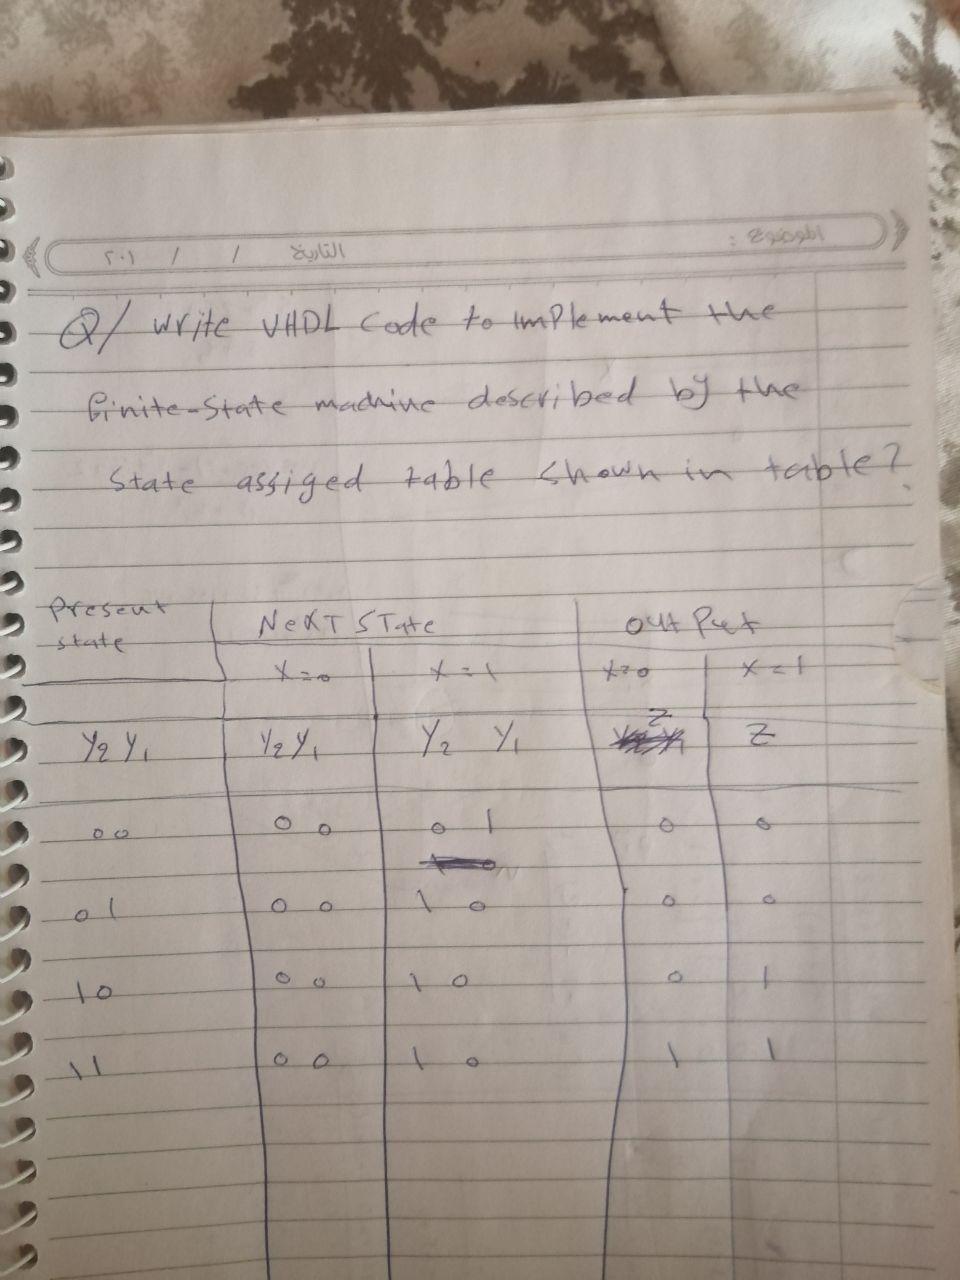 الموضوع :
التاريخ / / ٢٠١
Q/ write VHDL code to implement the
finite-state machine described by the
state assiged table shown in table?
Present state | Next State | output
x=0 | x=1 | x=0 | x=1
Y2 Y1 | Y2 Y1 | Y2 Y1 | Z | Z
00 | 0 0 | 0 1 | 0 | 0
01 | 0 0 | 1 0 | 0 | 0
10 | 0 0 | 1 0 | 0 | 1
11 | 0 0 | 1 0 | 1 | 1